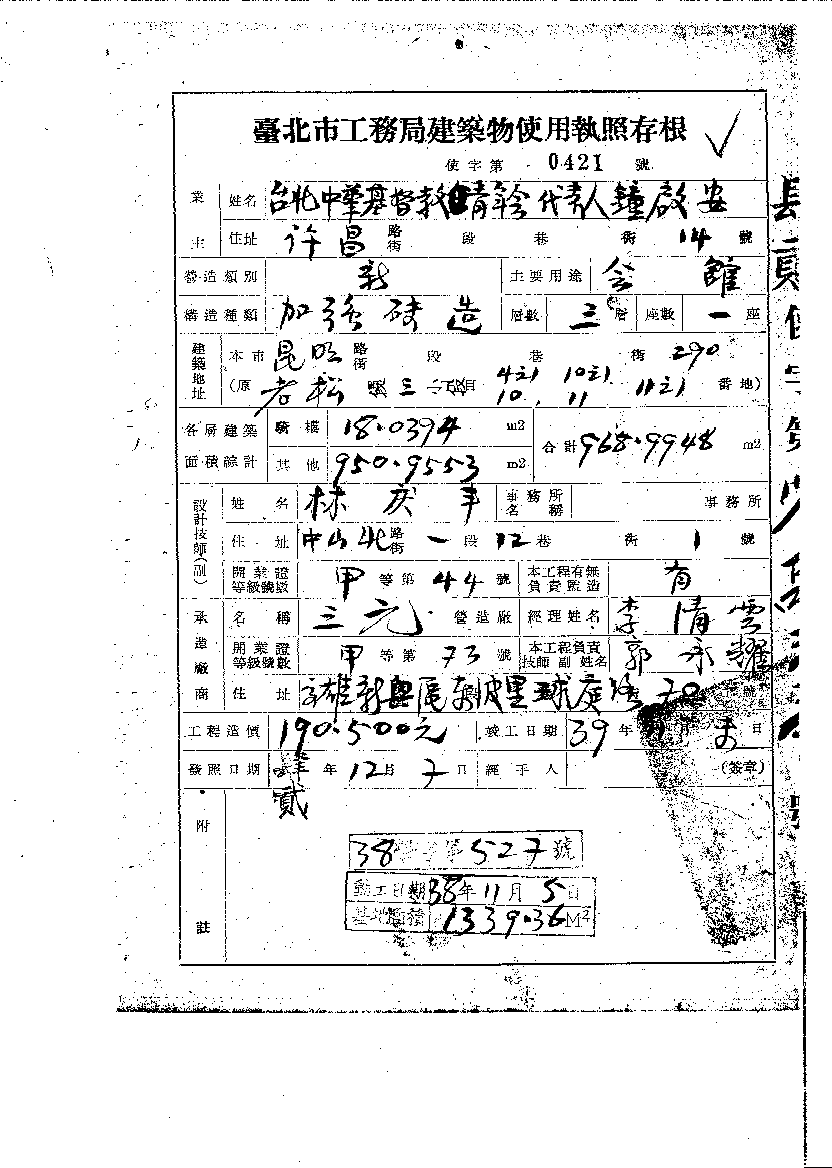 臺北市工務局建築物使用執照存根
使字第 0421 號
業主 姓名 台北中華基督教青年會代表人鐘啟安
住址 許昌 路街 段 巷 街 14 號
營造類別 新 主要用途 會館
構造種類 加強磚造 層數 三層 座數 一座
建築地址 本市 昆明 路街 段 巷 街 290
(原 老松 段三小段 4之1 10之1 10、11 11之1 番地)
各層建築面積綜計 騎樓 18.0394 m2 合計 968.9948 m2
其他 950.9553 m2
設計技師(副) 姓名 林慶丰 事務所名稱 事務所
住址 中山北 路街 一段 12巷 街 1 號
開業證等級號數 甲等第 44 號 本工程有無負責監造 有
承造廠商 名稱 三元 營造廠 經理姓名 李清雲
開業證等級號數 甲等第 73 號 本工程負責技師副姓名 郭永耀
住址 70 號
工程造價 190.500元 竣工日期 39年 月 日
發照日期 年 12月 7日 經手人 (簽章)
貳
附註
38 字第 527 號
動工日期 38年11月5日
基地面積 1339.36M²